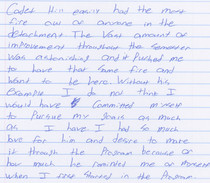 Cadet Hill easily had the most
fire out of anyone in the
detachment. The vast amount of
improvement throughout the semester
was astonishing and it pushed me
to have that same fire and
want to be here. Without his
example I do not think I
would have committed myself
to pursue my goals as much
as I have. I had so much
love for him and desire to move
it through the Program because of
how much he reminded me of myself
when I first started in the Program.